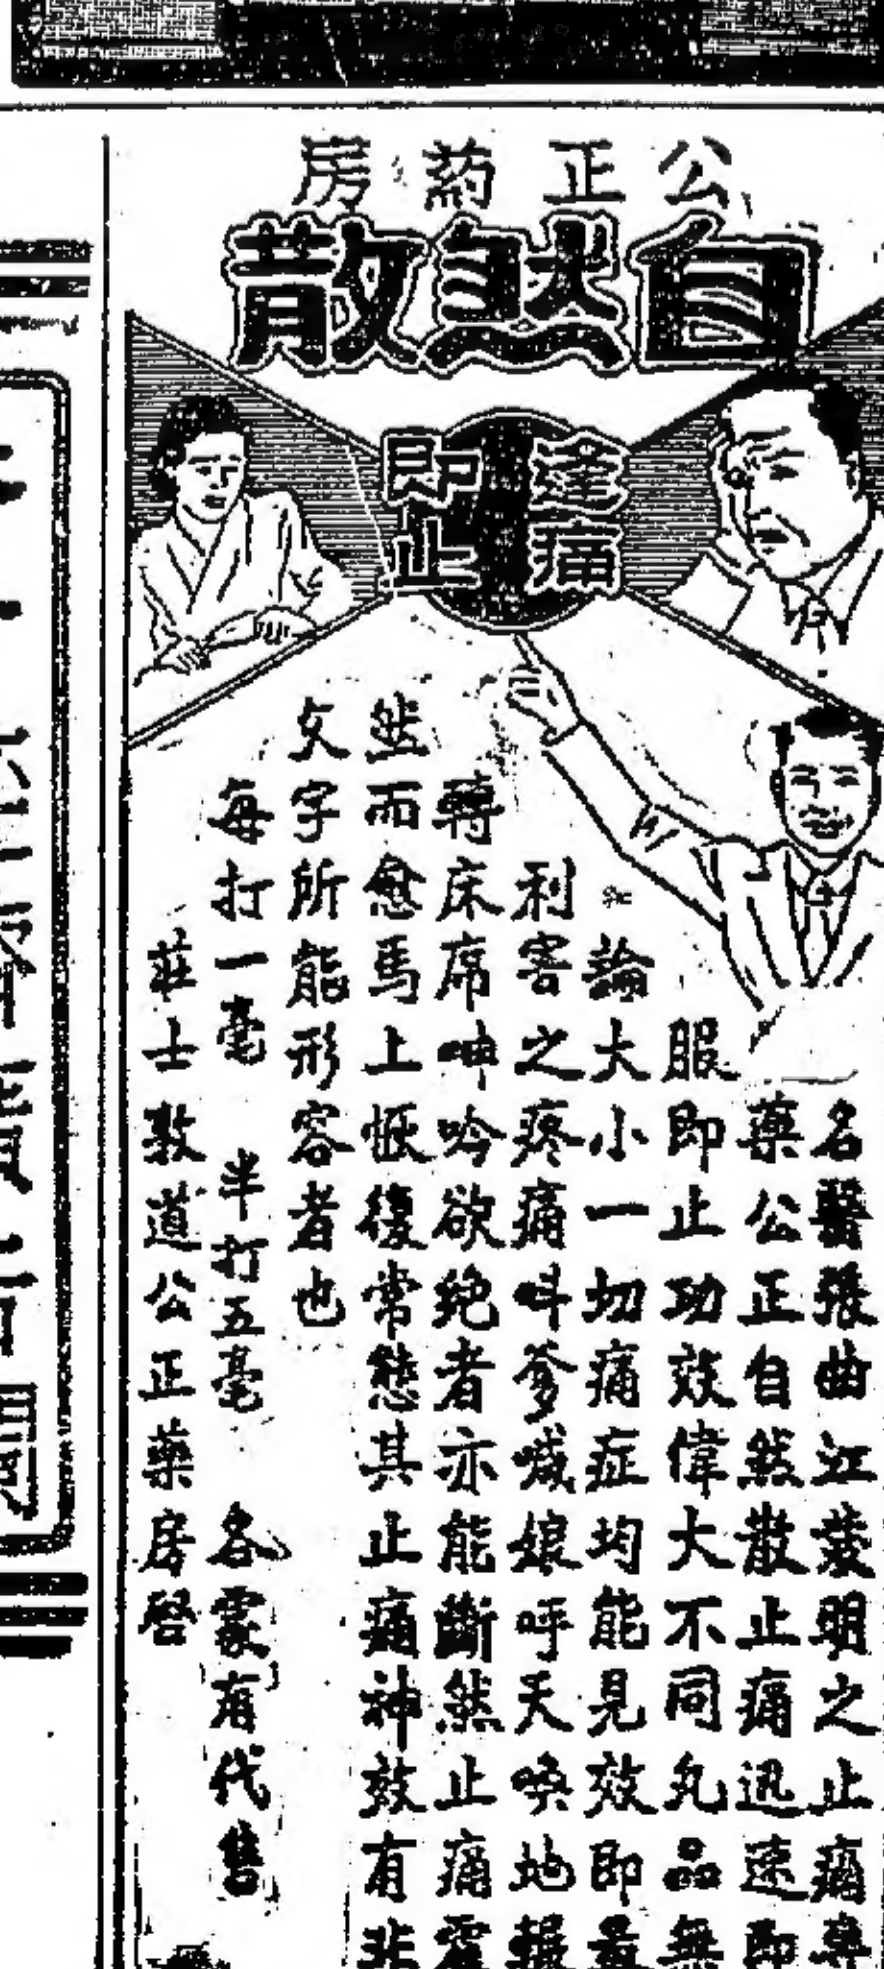 公正葯房
自然散
逢痛
即止
名醫張曲江發明之止痛藥
藥公正自然散止痛迅速即
服即止功效偉大不同丸品無
論大小一切痛症均能見效即最
利害之疼痛呌爹喊娘呼天喚地輾
轉床席呻吟欲絶者亦能斷然止痛霍
然而愈馬上恢復常態其止痛神效有非
文字所能形容者也
每打一毫 半打五毫 各處有代售
莊士敦道公正藥房啓